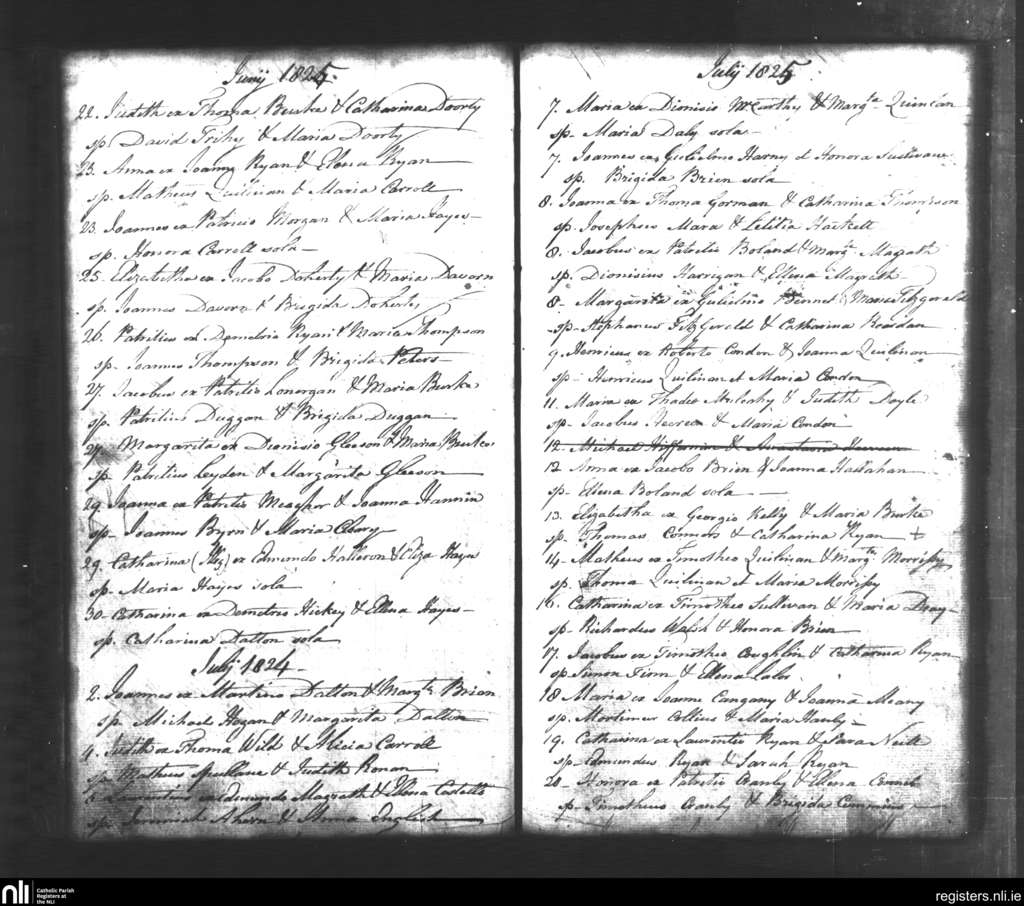 Junij 1825.
22. Judith ex Thoma Burke & Catharina Doorly
sp. David Trihy & Maria Doorly
23. Anna ex Joanne Ryan & Elena Ryan
sp. Matheus Quilinan & Maria Carroll
23. Joannes ex Patricio Morgan & Maria Hayes
sp. Honora Carroll sola
25. Elizabetha ex Jacobo Doherty & Maria Davorn
sp. Joannes Davorn & Brigida Doherty
26. Patritius ex Demetrio Ryan & Maria Thompson
sp. Joannes Thompson & Brigida Peters
27. Jacobus ex Patritio Lonorgan & Maria Burke
sp. Patritius Duggan & Brigida Duggan
27. Margarita ex Dionisio Gleeson & Maria Burke
sp. Patritius Leyden & Margarita Gleeson
29. Joanna ex Patritio Meagher & Joanna Hannin
sp. Joannes Byrn & Maria Cleary
29. Catharina ex Edmundo Halloron & Eliza Hayes
sp. Maria Hayes sola
30. Catharina ex Demetrio Hickey & Ellena Hayes
sp. Catharina Dalton sola
Julij 1824
2. Joannes ex Martino Dalton & Margta Brian
sp. Michael Hogan & Margarita Dalton
4. Judith ex Thoma Wild & Alicia Carroll
sp. Matheus Spullane & Judith Ronan
5. Laurentius ex Edmundo Magrath & Ellena Costello
sp. Jeremiah Ahern & Anna English
Julij 1825
7. Maria ex Dionisio McCarthy & Margta Quinlan
sp. Maria Daly sola
7. Joannes ex Gulielmo Harny et Honora Sullivan
sp. Brigida Brien sola
8. Joanna ex Thoma Gorman & Catharina Thompson
sp. Josephus Mara & Letitia Hackett
8. Jacobus ex Patritio Boland & Margt Magath
sp. Dionisius Harrigan & Ellena Magrath
8. Margarita ex Gulielmo Bennet & Maria Fitzgerald
sp. Stephanus FitzGerald & Catharina Reardan
9. Henricus ex Roberto Condon & Joanna Quilinan
sp. Henricus Quilinan et Maria Condon
11. Maria ex Thadeo & Judith Doyle
sp. Jacobus & Maria Condon
12. Michael Heffernan & Anastasia
12 Anna ex Jacobo Brien & Joanna Hallahan
sp. Ellena Boland sola
13. Elizabetha ex Georgio Kelly & Maria Burke
sp. Thomas Connors & Catharina Ryan
14. Matheus ex Timotheo Quilinan & Margta Morrissy
sp. Thoma Quilinan et Maria Morrissy
16. Catharina ex Timotheo Sullivan & Maria Shay
sp. Richardus Walsh & Honora Brien
17. Jacobus ex Timotheo Coughlin & Catharina Ryan
sp Simon Finn & Ellena Lalor
18 Maria ex Joanne Cangany & Joanna Meany
sp. Mortimer Collins & Maria Hanly
19. Catharina ex Laurentio Ryan & Sara Neill
sp. Edmundus Ryan & Sarah Ryan
20. Honora ex Patritio Cranly & Ellena
sp. Timotheus Cranly & Brigida Cummins
nli
Catholic Parish
Registers at
the NLI
registers.nli.ie